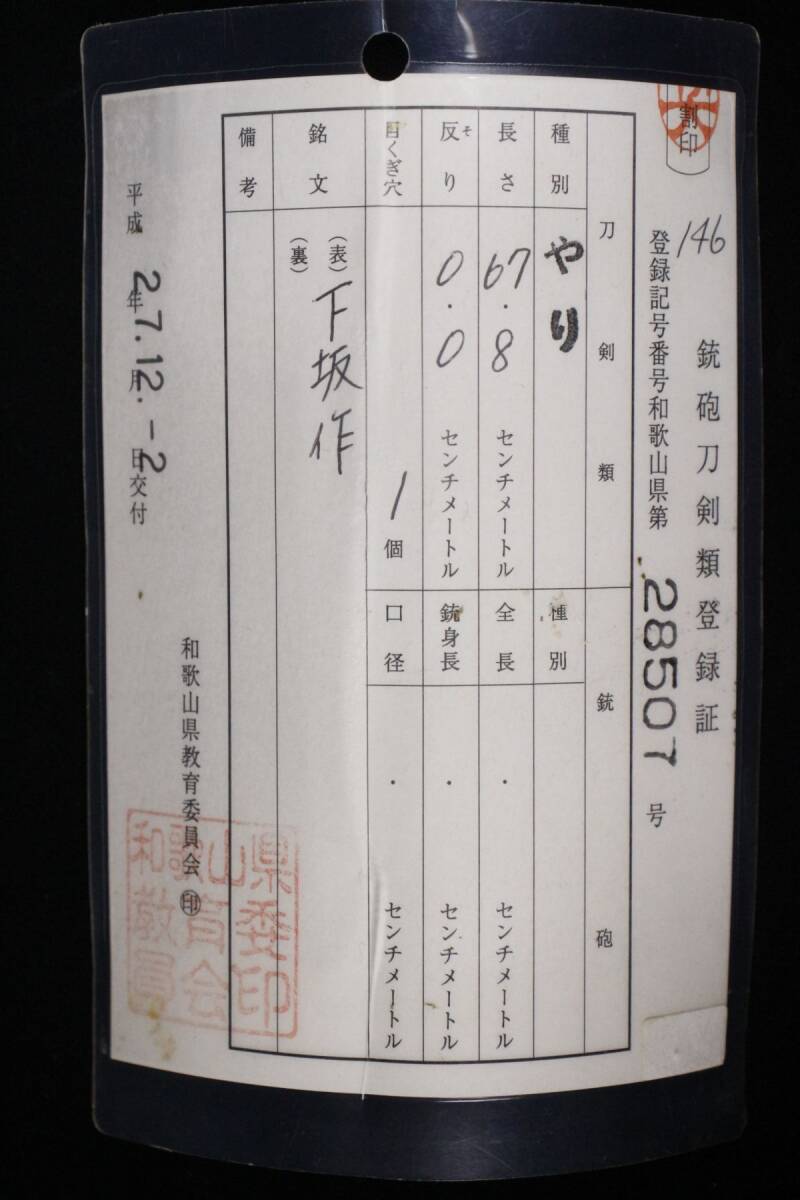 割印
146
銃砲刀剣類登録証
登録記号番号和歌山県第 28507 号
刀剣類
銃砲
種別 やり
種別
長さ 67.8 センチメートル
全長 . センチメートル
反り そ 0.0 センチメートル
銃身長 . センチメートル
目くぎ穴 1 個
口径 . センチメートル
銘文 (表) 下坂作
(裏)
備考
平成 27年 12.月 -2日交付
和歌山県教育委員会 ㊞
和歌山県
教育委
員会印